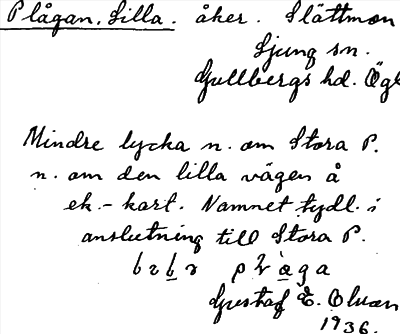 Plågan, Lilla. åker. Slättmon
Ljung sn.
Gullbergs hd. Ögl
Mindre lycka n. om Stora P.
n. om den lilla vägen å
ek.-kart. Namnet tydl. i
anslutning till Stora P.
Gustaf E. Olván
1936.